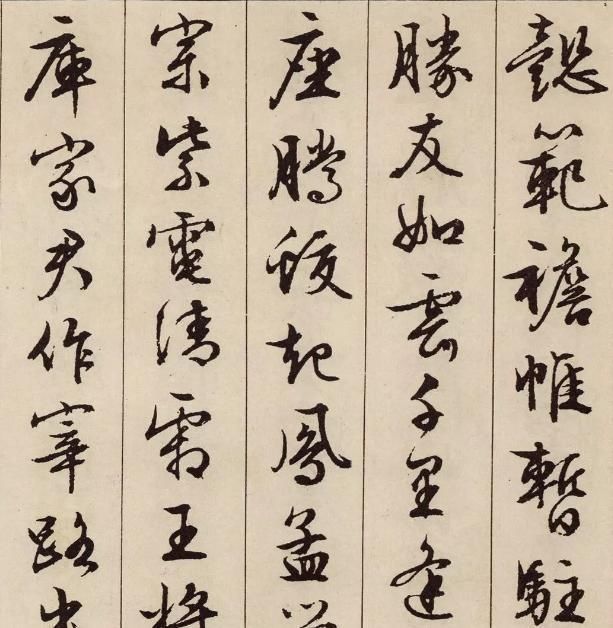 懿範襜帷暫駐
勝友如雲千里逢
座騰蛟起鳳孟學
宗紫電清霜王將
庫家君作宰路出